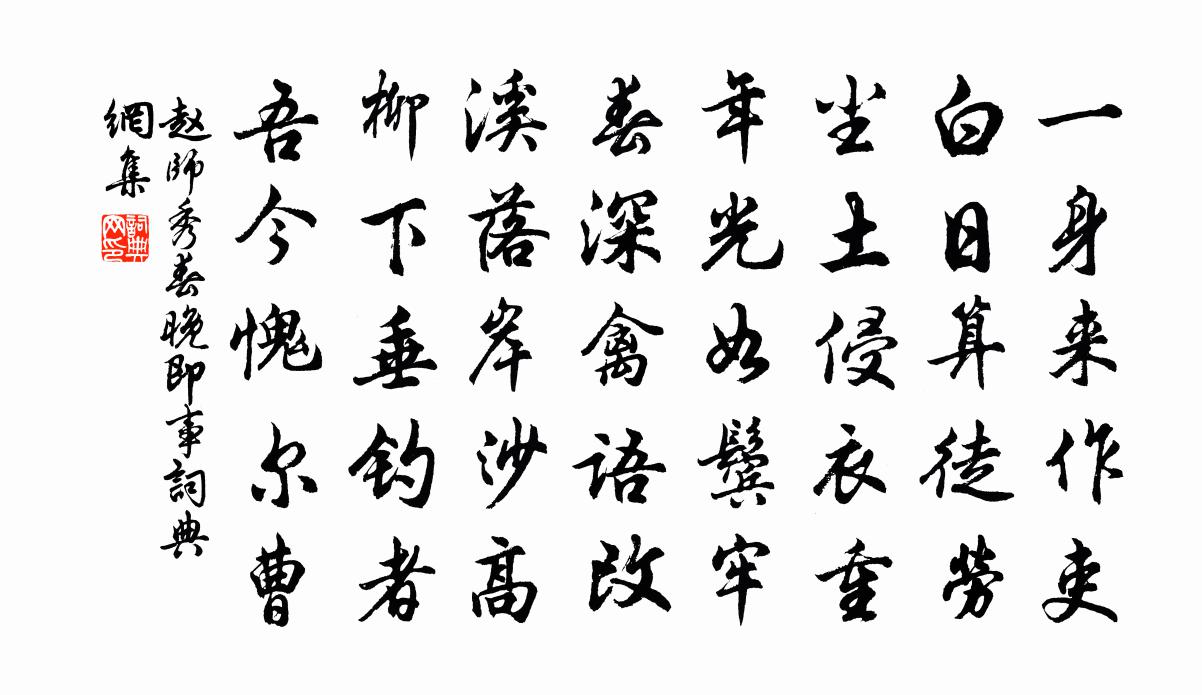 一身来作吏
白日算徒劳
尘土侵衣重
年光如鬓牢
春深禽语改
溪落岸沙高
柳下垂钓者
吾今愧尔曹
赵師秀春晚即事詞典
網集
詞典
网印